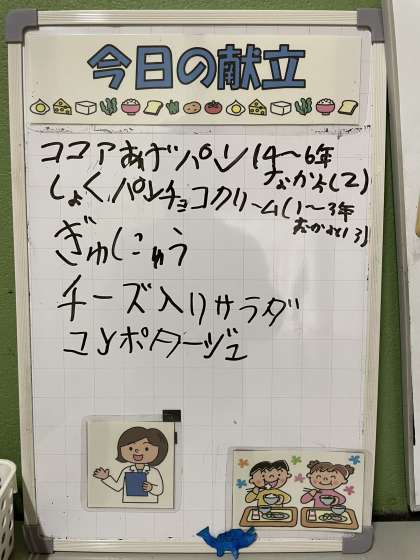 今日の献立
ココアあげパン(4〜6年
なかよし2)
しょくパンチョコクリーム(1〜3年
なかよし1 3)
ぎゅにゅう
チーズ入りサラダ
コンポタージュ